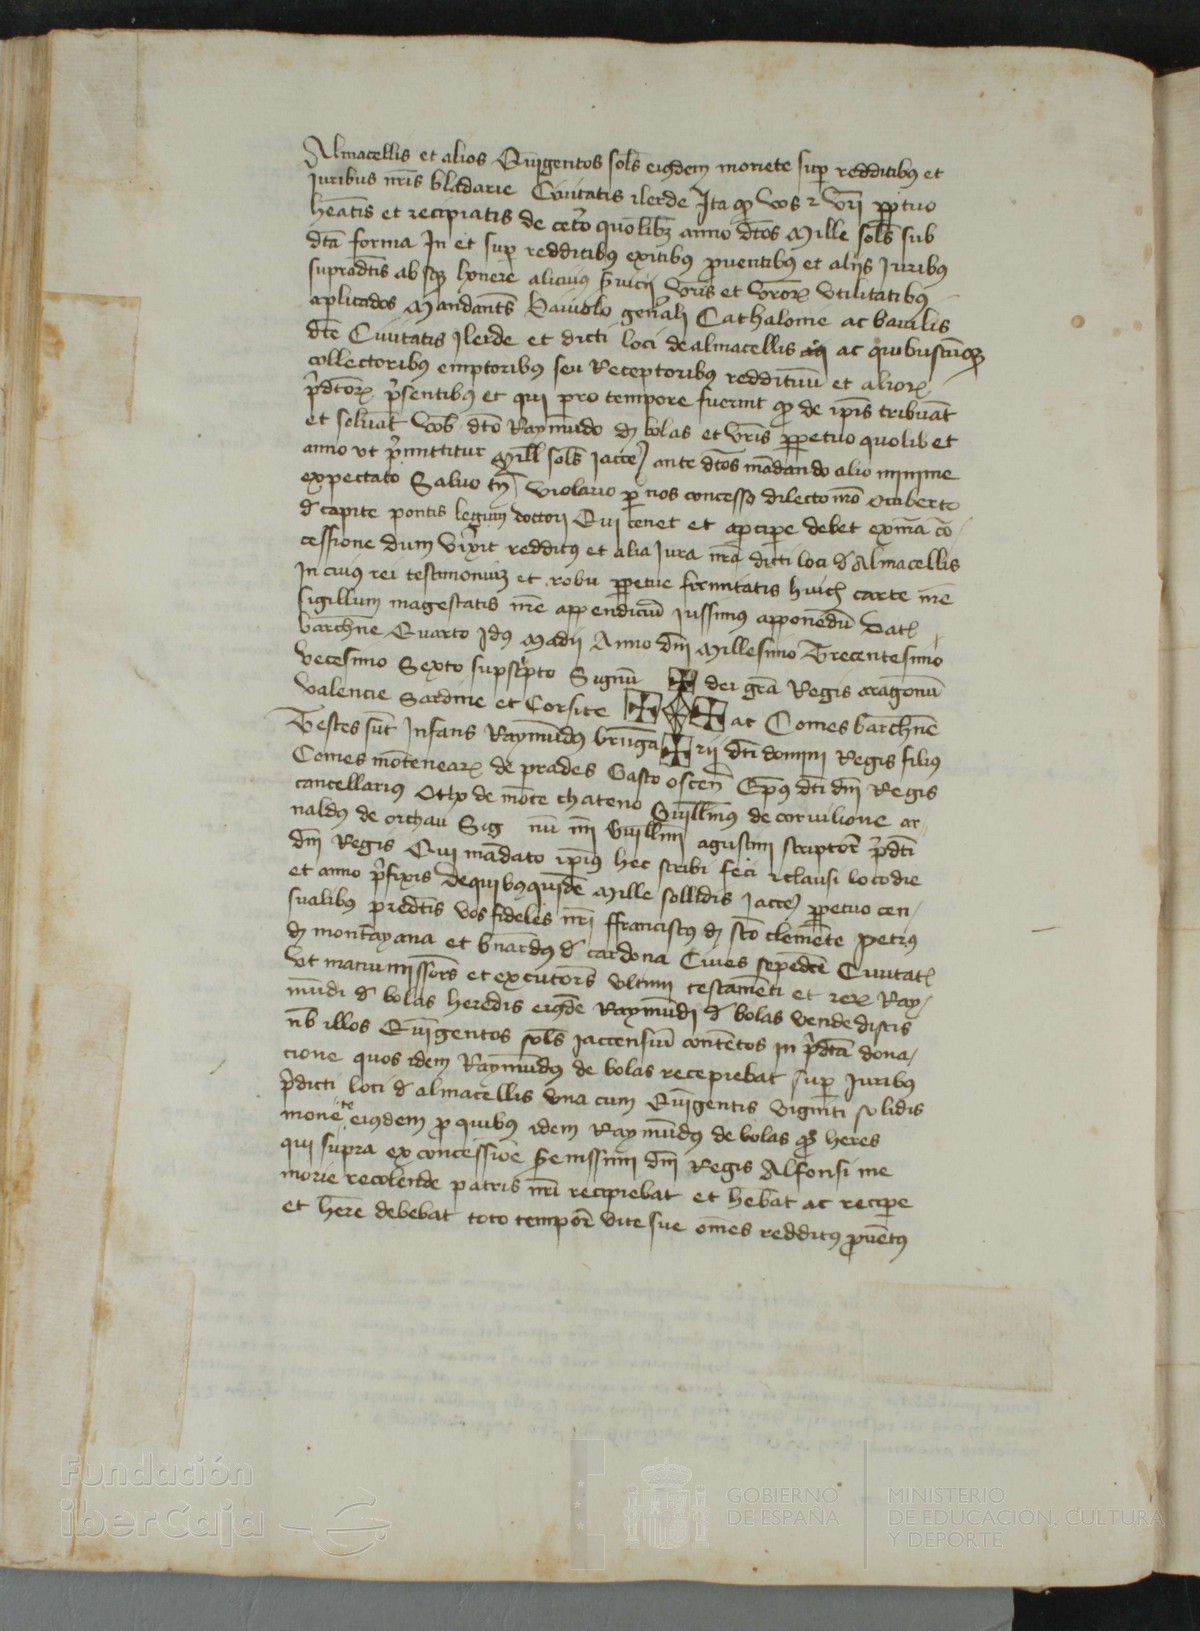 Almacellis et alios Quīgentos sol̄s eiusdem monete sup̱ redditibus et
iuribus nr̄is bladarie Ciuitatis ilerde Ita qd̄ vos & vr̄i pp̱etuo
heātis et recipiatis de cet̄o quolibꝫ anno dc̄os Mille sol̄s sub
dc̄a forma In et sup̱ redditibus exitibus ꝓuentibus et aliis Iuribus
supradc̄is ab sqꝫ honere alicuius s̄uicii vr̄is et vr̄orꝝ vtilitatibus
aplicados Mandant̄s baiulo gen̄ali Cathalonie ac baiulis
dc̄e Ciuitatis Ilerde et dicti loci de almacellis ac quibuscūqꝫ
collectoribus emptoribus seu Receptoribus reddituū et aliorꝝ
p̄dc̄orꝝ p̄sentibus et qui pro tempore fuerint qd̄ de ip̄is tribuāt
et soluāt vob̄ dc̄o Raymūdo d̄ bolas et vr̄is pp̱etuo quolibet
anno vt p̄mittitur Mill̄ sol̄s iacc̄ ante dc̄os mādando alio minime
expectato Saluo tn̄ violario p̱ nos concesso dilecto nr̄o
d̄ capite pontis legum doctori Qui tenet et p̱cipe debet ex nr̄a cō/
cessione dum vixerit redditus et alia Iura nr̄a dicti loci d̄ Almacellis
In cuius rei testimoniuꝫ et robu pp̱etue firmitatis huic carte nr̄e
sigillum magestatis nr̄e appendiciū iussimus apponēdū Dat̄
barchn̄e Quarto Idus Madii Anno dn̄i Millesimo Trecentesimo
vecesimo Sexto supsc̄pto Signū dei gr̄a Regis aragonū
valencie Sardinie et Corsice ac Comes barchn̄e
Testes sūt Infans Raymūdus brūga rij dc̄i domini Regis filius
Comes mōtenearꝝ de prades Gasto oscen̄ Ep̄us dc̄i dn̄i Regis
cancellarius Otho de mōte chateno Guill̄mus de ceruilione ar-
naldus de orchau Sig nū mi Guill̄mi agustini scriptor̄ p̄dc̄i
dn̄i Regis Qui mādato ip̄ius hec scribi feci & clausi loco die
et anno p̄fixis De quibus quidē Mille sollidis Iacc̄ pp̱etuo cen-
sualibus predc̄is vos fideles nr̄i ffranciscus d̄ sc̄o clemēte petrus
d̄ montayana et bn̄ardus d̄ cardona Ciues sepedc̄e Ciuitat̄
vt manumissor̄s et executor̄s vltimi testamēti et rerꝝ Ray/
mūdi d̄ bolas heredis eiusdē Raymūdi d̄ bolas vendedistis
nb̄ illos Quīgentos sol̄s iaccensiū contētos in p̄dc̄a dona/
cione quos idem Raymūdus de bolas recepiebat sup̱ Iuribus
p̄dicti loci d̄ almacellis vna cum Quīgentis viginti solidis
monete eiusdem ꝓ quibus idem Raymūdus de bolas qd̄ heres
qui supra ex concessiōe s̄enissimi dn̄i Regis Alfonsi me
morie recolende patris nr̄i recipiebat et hēbat ac recipe
et hēre debebat toto tempor̄ vite sue om̄es redditus ꝓuētus
Fundación
iberCaja
GOBIERNO
DE ESPAÑA
MINISTERIO
DE EDUCACIÓN, CULTURA
Y DEPORTE